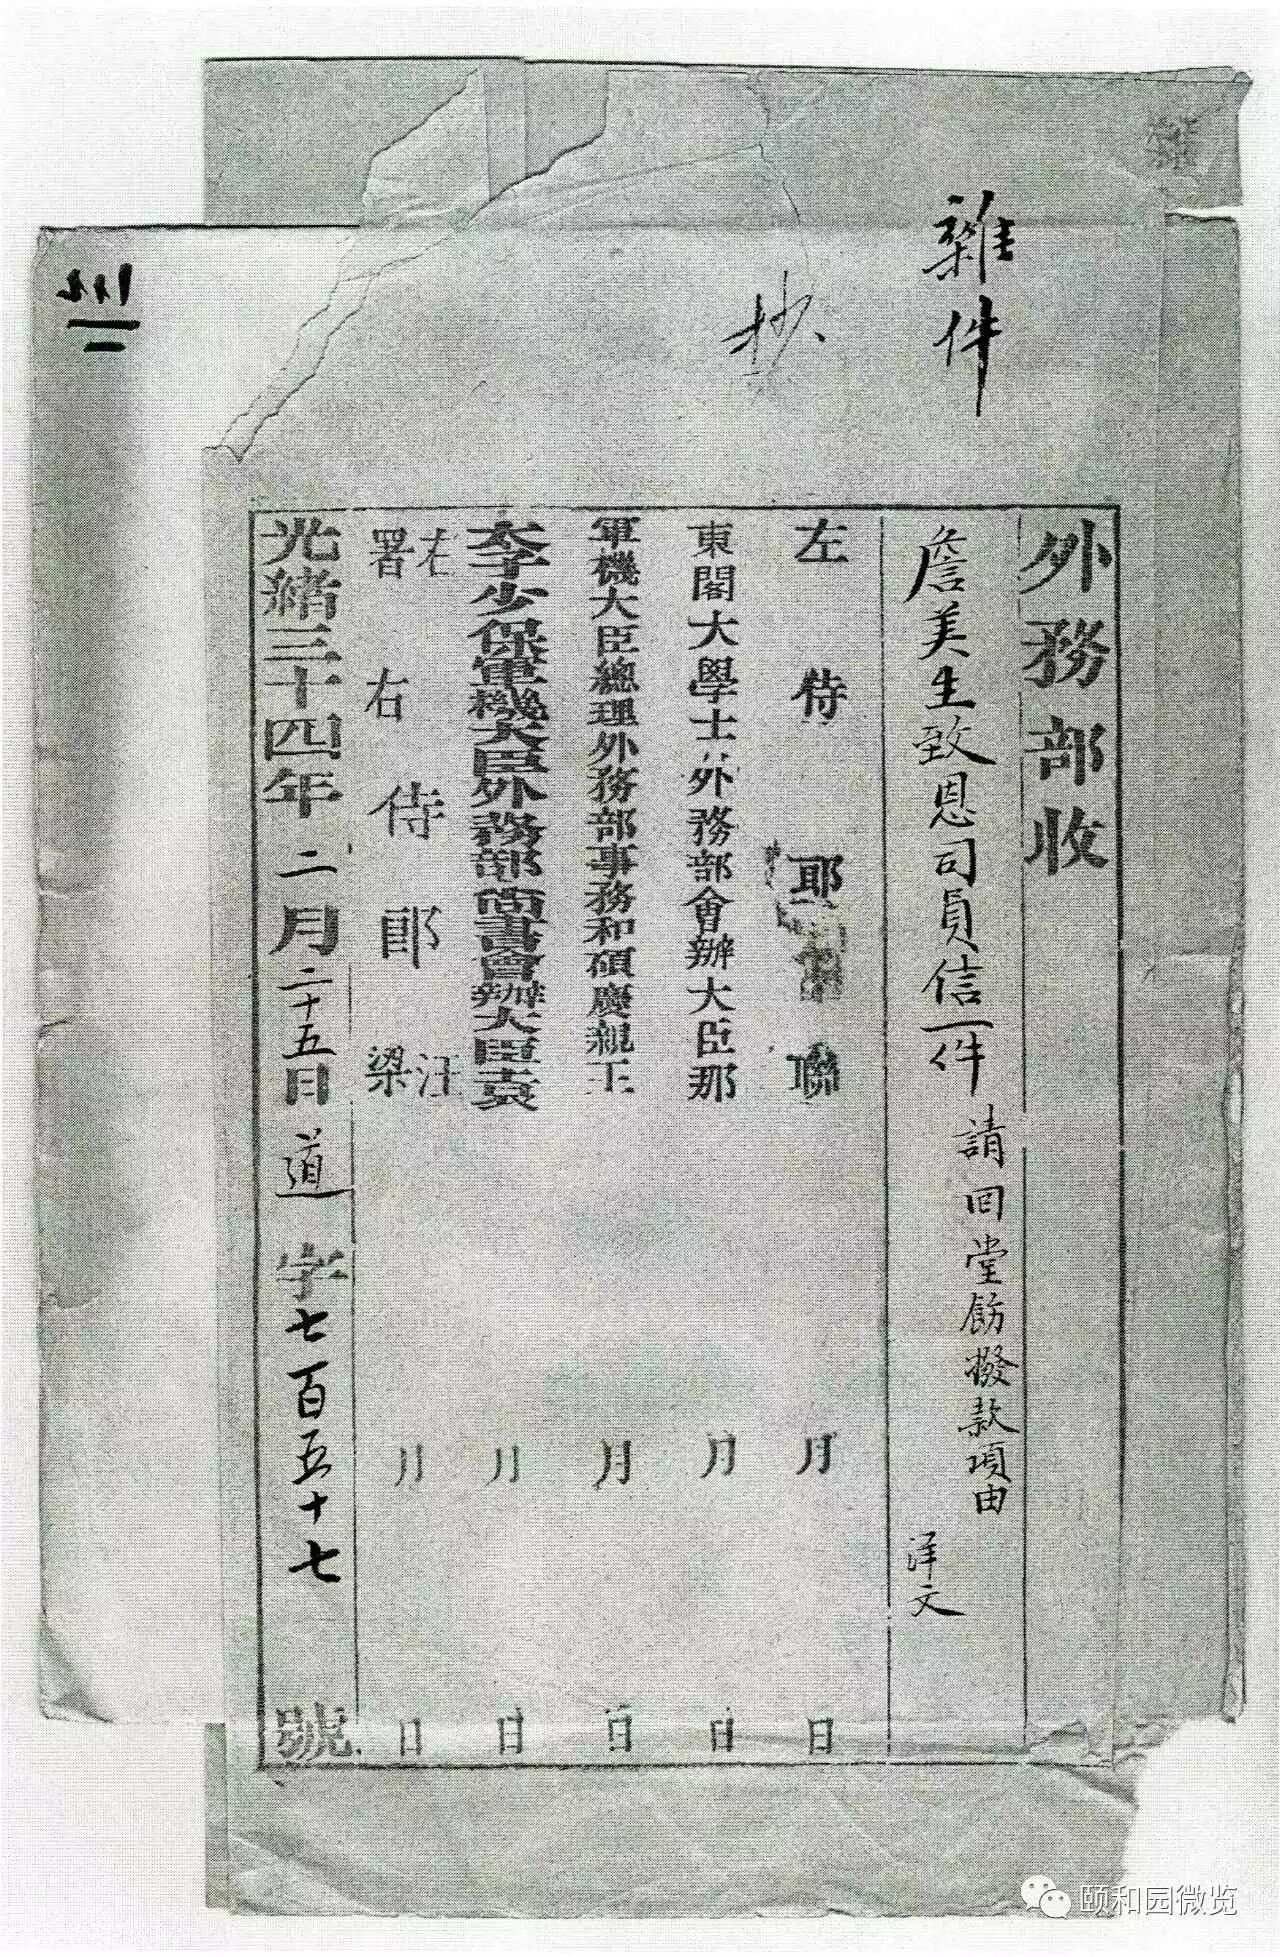 雜件
抄
外務部收
詹美生致恩司員信一件請回堂飭撥款項由
洋文
左侍郎聯 月 日
東閣大學士外務部會辦大臣那 月 日
軍機大臣總理外務部事務和碩慶親王 月 日
太子少保軍機大臣外務部尚書會辦大臣袁 月 日
右侍郎汪
署右侍郎梁 月 日
光緒三十四年二月二十五日道字七百五十七號
颐和园微览